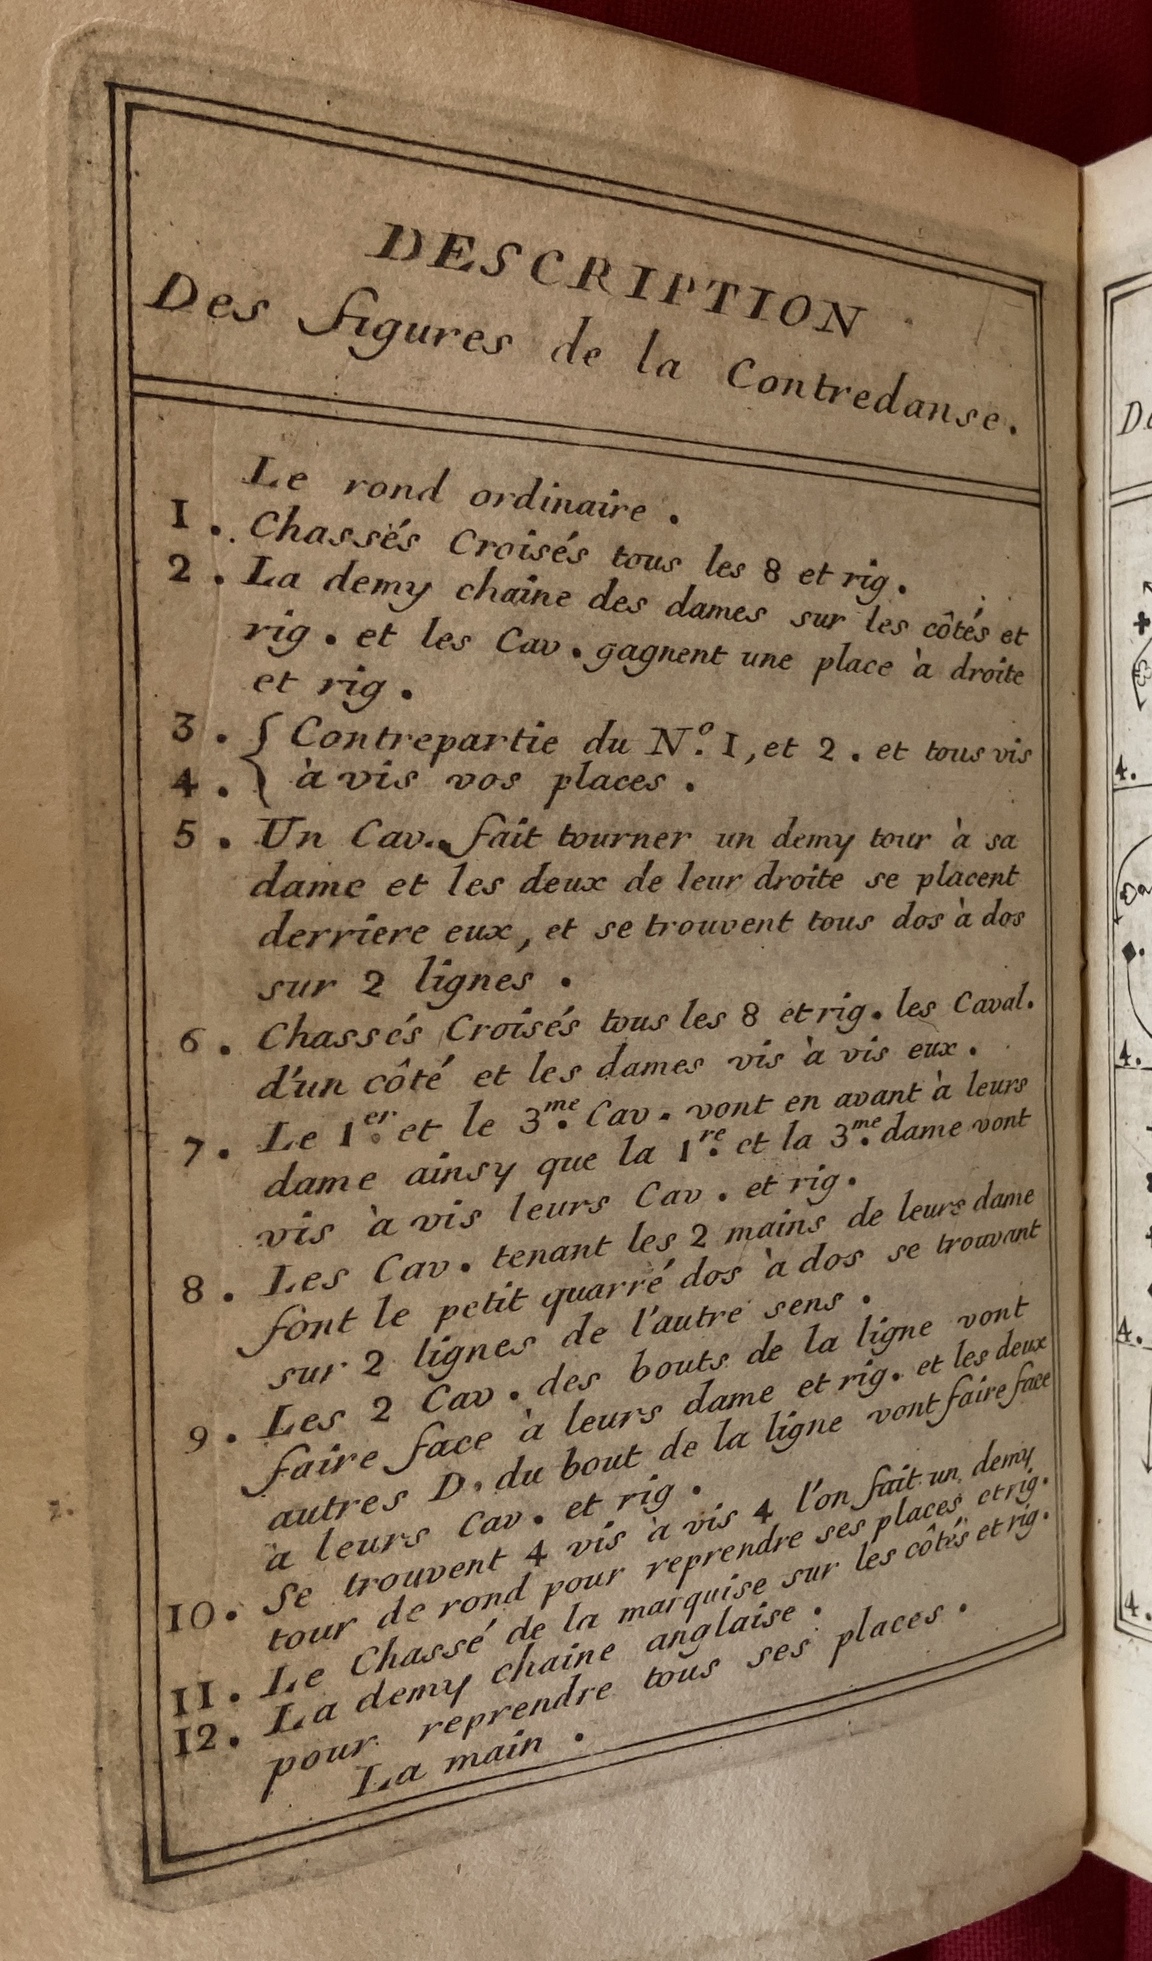 DESCRIPTION
Des figures de la Contredanse.
Le rond ordinaire.
1. Chassés Croisés tous les 8 et rig.
2. La demy chaine des dames sur les côtés et
rig. et les Cav. gagnent une place à droite
et rig.
3. { Contrepartie du N.º 1, et 2. et tous vis
4. { à vis vos places.
5. Un Cav. fait tourner un demy tour à sa
dame et les deux de leur droite se placent
derriere eux, et se trouvent tous dos à dos
sur 2 lignes.
6. Chassés Croisés tous les 8 et rig. les Caval.
d'un côté et les dames vis à vis eux.
7. Le 1.er et le 3.me Cav. vont en avant à leurs
dame ainsy que la 1.re et la 3.me dame vont
vis à vis leurs Cav. et rig.
8. Les Cav. tenant les 2 mains de leurs dame
font le petit quarré dos à dos se trouvant
sur 2 lignes de l'autre sens.
9. Les 2 Cav. des bouts de la ligne vont
faire face à leurs dame et rig. et les deux
autres D. du bout de la ligne vont faire face
à leurs Cav. et rig.
10. Se trouvent 4 vis à vis 4 l'on fait un demy
tour de rond pour reprendre ses places et rig.
11. Le Chassé de la marquise sur les côtés et rig.
12. La demy chaine anglaise.
pour reprendre tous ses places.
La main.
4.
4.
4.
4.